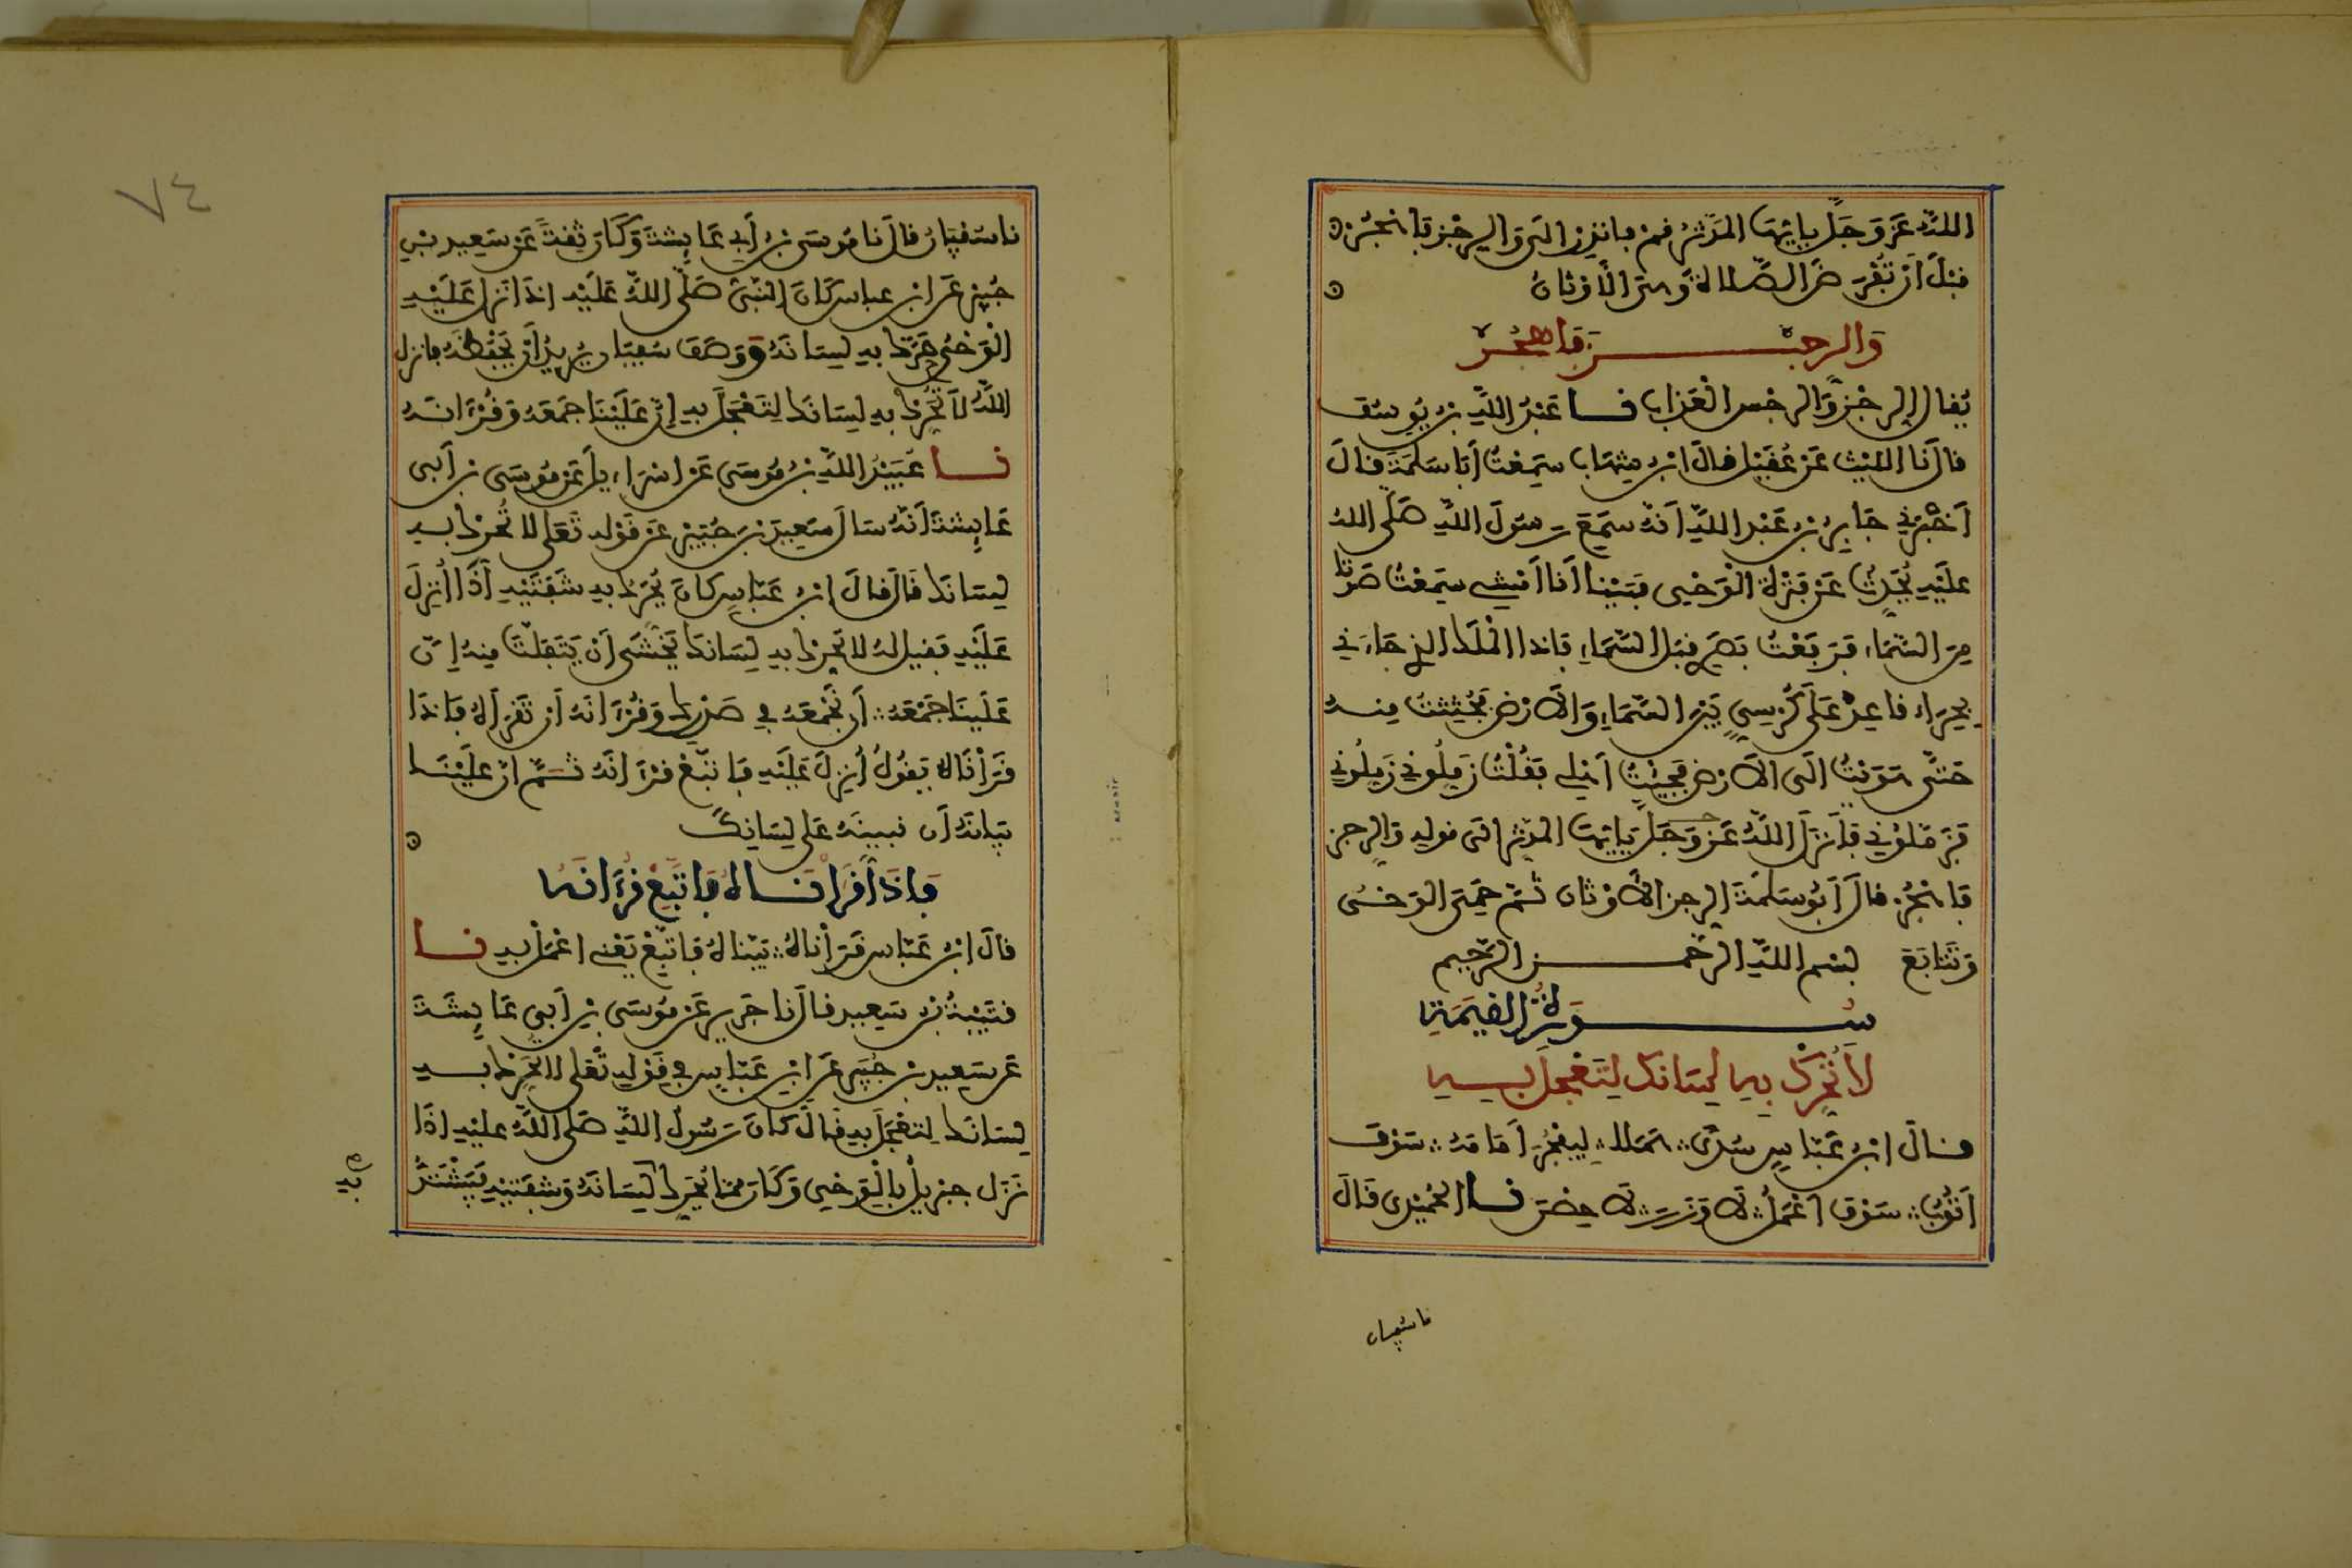 الله عز وجل يا أيها المدثر قم فانذر الى والرجز فاهجر
قبل أن تفرض الصلاة وهي الأوثان
والرجز فاهجر
يقال الرجز والرجس العذاب نا عبد الله بن يوسف
قال نا الليث عن عقيل قال ابن شهاب سمعت أبا سلمة قال
أخبرني جابر بن عبد الله أنه سمع رسول الله صلى الله
عليه يحدث عن فترة الوحي فبينا أنا أمشي سمعت صوتا
من السماء فرفعت بصري قبل السماء فاذا الملك الذي جاءني
بحراء قاعد على كرسي بين السماء والارض فجئثت منه
حتى هويت الى الارض فجيئت أهلي فقلت زملوني زملوني
فزملوني فأنزل الله عز وجل يا أيها المدثر الى قوله والرجز
فاهجر قال أبو سلمة الرجز الأوثان ثم حمي الوحي
وتتابع بسم الله الرحمن الرحيم
سورة القيمة
لا تحرك به لسانك لتعجل به
قال ابن عباس سدى هملا ليفجر أمامه سوف
أتوب سوف أعمل لا وزر لا حصن نا الحميدي قال
نا سفيان
نا سفيان قال نا موسى بن أبي عايشة وكان ثقة عن سعيد بن
جبير عن ابن عباس كان النبي صلى الله عليه اذا نزل عليه
الوحي حرك به لسانه ووصف سفيان يريد أن يحفظه فانزل
الله لا تحرك به لسانك لتعجل به إن علينا جمعه وقرءانه
نا عبيد الله بن موسى عن اسراءيل عن موسى بن أبي
عايشة أنه سال سعيد بن جبير عن قوله تعلى لا تحرك به
لسانك قال قال ابن عباس كان يحرك به شفتيه اذا أنزل
عليه فقيل له لا تحرك به لسانك يخشى أن يتفلت منه إن
علينا جمعه أن نجمعه في صدرك وقرءانه أن تقرأه فاذا
قرأناه يقول أنزل عليه فاتبع قرءانه ثم ان علينا
بيانه أن نبينه على لسانك
فاذا قرأناه فاتبع قرءانه
قال ابن عباس قرأناه بيناه فاتبع يعني اعمل به نا
قتيبة بن سعيد قال نا جرير عن موسى بن أبي عايشة
عن سعيد بن جبير عن ابن عباس في قوله تعلى لا تحرك به
لسانك لتعجل به قال كان رسول الله صلى الله عليه اذا
نزل جبريل بالوحي وكان مما يحرك لسانه وشفتيه فيشتد
به
٧٤